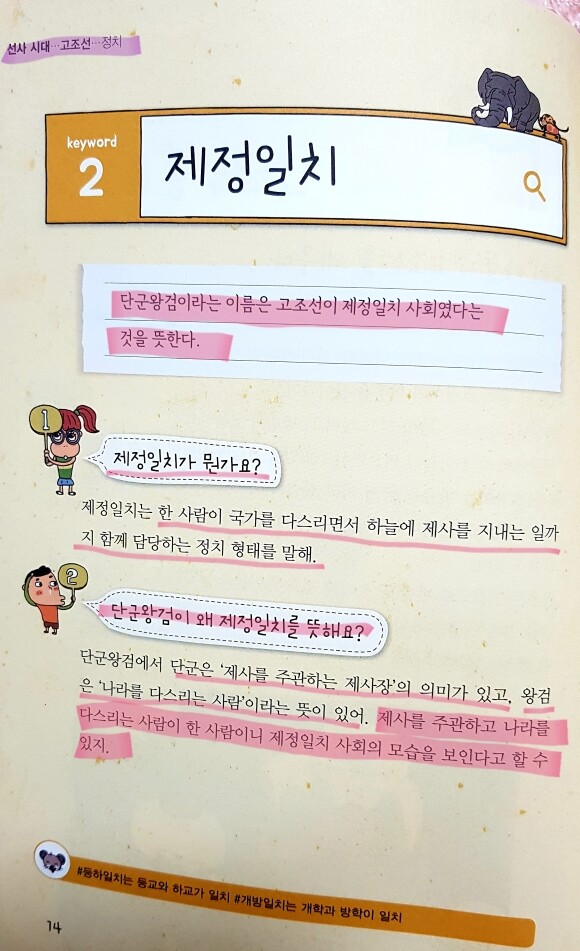 선사 시대…고조선…정치
keyword
2
제정일치
단군왕검이라는 이름은 고조선이 제정일치 사회였다는
것을 뜻한다.
1
제정일치가 뭔가요?
제정일치는 한 사람이 국가를 다스리면서 하늘에 제사를 지내는 일까
지 함께 담당하는 정치 형태를 말해.
2
단군왕검이 왜 제정일치를 뜻해요?
단군왕검에서 단군은 ‘제사를 주관하는 제사장’의 의미가 있고, 왕검
은 ‘나라를 다스리는 사람’이라는 뜻이 있어. 제사를 주관하고 나라를
다스리는 사람이 한 사람이니 제정일치 사회의 모습을 보인다고 할 수
있지.
#등하일치는 등교와 하교가 일치 #개방일치는 개학과 방학이 일치
14